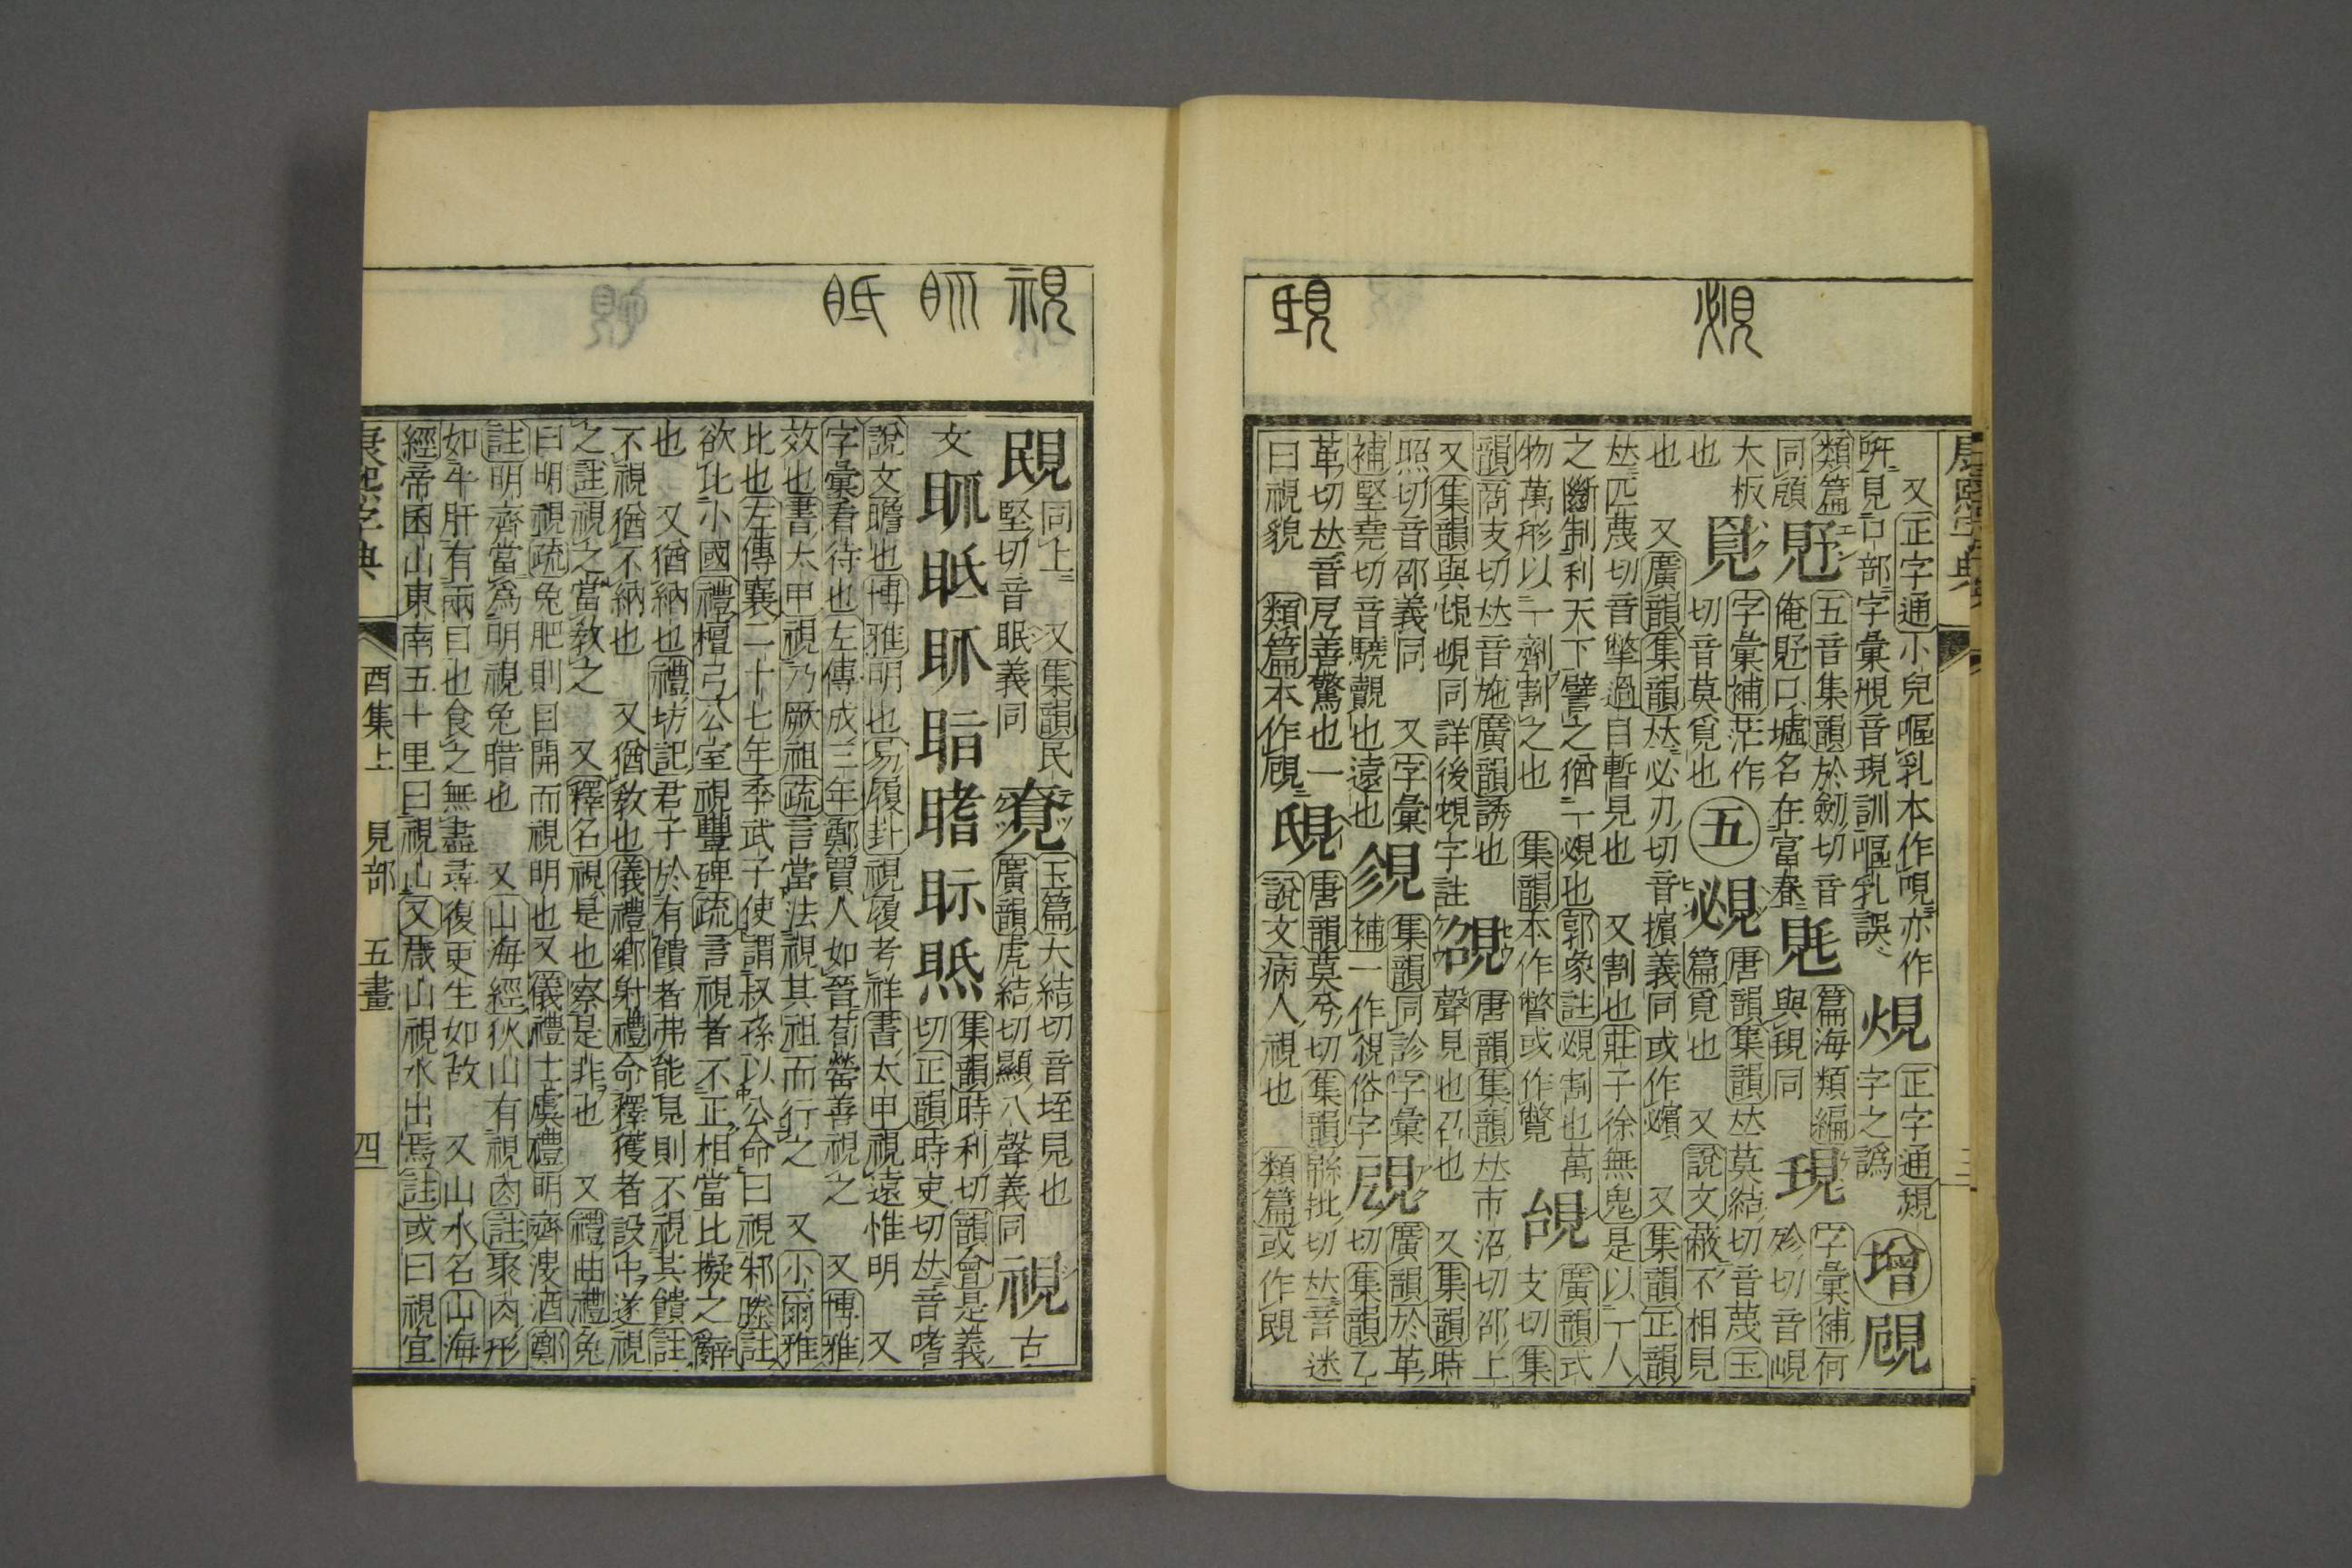 又正字通小兒嘔乳本作哯亦作
㖑見口部字彙覑音現訓嘔乳誤
正字通覢
字之譌
增
類篇
同顧
五音集韻於劒切音
俺覎口墟名在富春
篇海類編
與現同
現
字彙補何
殄切音峴
木板
也
覓
字彙補莊作
切音莫覓也
五
覕
唐韻集韻𠀤莫結切音蔑玉
篇覓也 又說文蔽不相見
也 又廣韻集韻𠀤必刃切音擯義同或作覕 又集韻正韻
𠀤匹蔑切音擎過目暫見也 又割也莊子徐無鬼是以一人
之斷制利天下譬之猶一覕也郭象註覕割也萬
物萬形以一劑割之也 集韻本作瞥或作覽
覘
廣韻式
支切集
韻商支切𠀤音施廣韻誘也
又集韻與覘覗同詳後覗字註
唐韻集韻𠀤市沼切邵上
聲見也召也 又集韻時
照切音邵義同 又字彙
補堅堯切音驍覿也遠也
集韻同診字彙
補一作覙俗字
廣韻於革
切集韻乙
革切𠀤音戹善驚也一
曰視貌 類篇本作覛
唐韻莫兮切集韻緜批切𠀤音迷
說文病人視也 類篇或作䁕
康熙字典
視
同上 又集韻民
堅切音眠義同
玉篇大結切音垤見也
廣韻虎結切顯入聲義同
視
古
文
眡
眎
集韻時利切韻會是義
切正韻時吏切𠀤音嗜
說文瞻也博雅明也易履卦視履考祥書太甲視遠惟明 又
字彙看待也左傳成三年鄭賈人如晉荀罃善視之 又博雅
效也書太甲視乃厥祖疏言當法視其祖而行之 又小爾雅
比也左傳襄二十七年季武子使謂叔孫以公命曰視邾滕註
欲比小國禮檀弓公室視豐碑疏言視者不正相當比擬之辭
也 又猶納也禮坊記君子於有饋者弗能見則不視其饋註
不視猶不納也 又猶敎也儀禮鄉射禮命釋獲者設中遂視
之註視之當敎之 又釋名視是也察是非也 又禮曲禮兔
曰明視疏兔肥則目開而視明也又儀禮士虞禮明齊溲酒鄭
註明齊當爲明視兔腊也 又山海經狄山有視肉註聚肉形
如牛肝有兩目也食之無盡尋復更生如故 又山水名山海
經帝囷山東南五十里曰視山又葴山視水出焉註或曰視宜
康熙字典 酉集上 見部 五畫 四